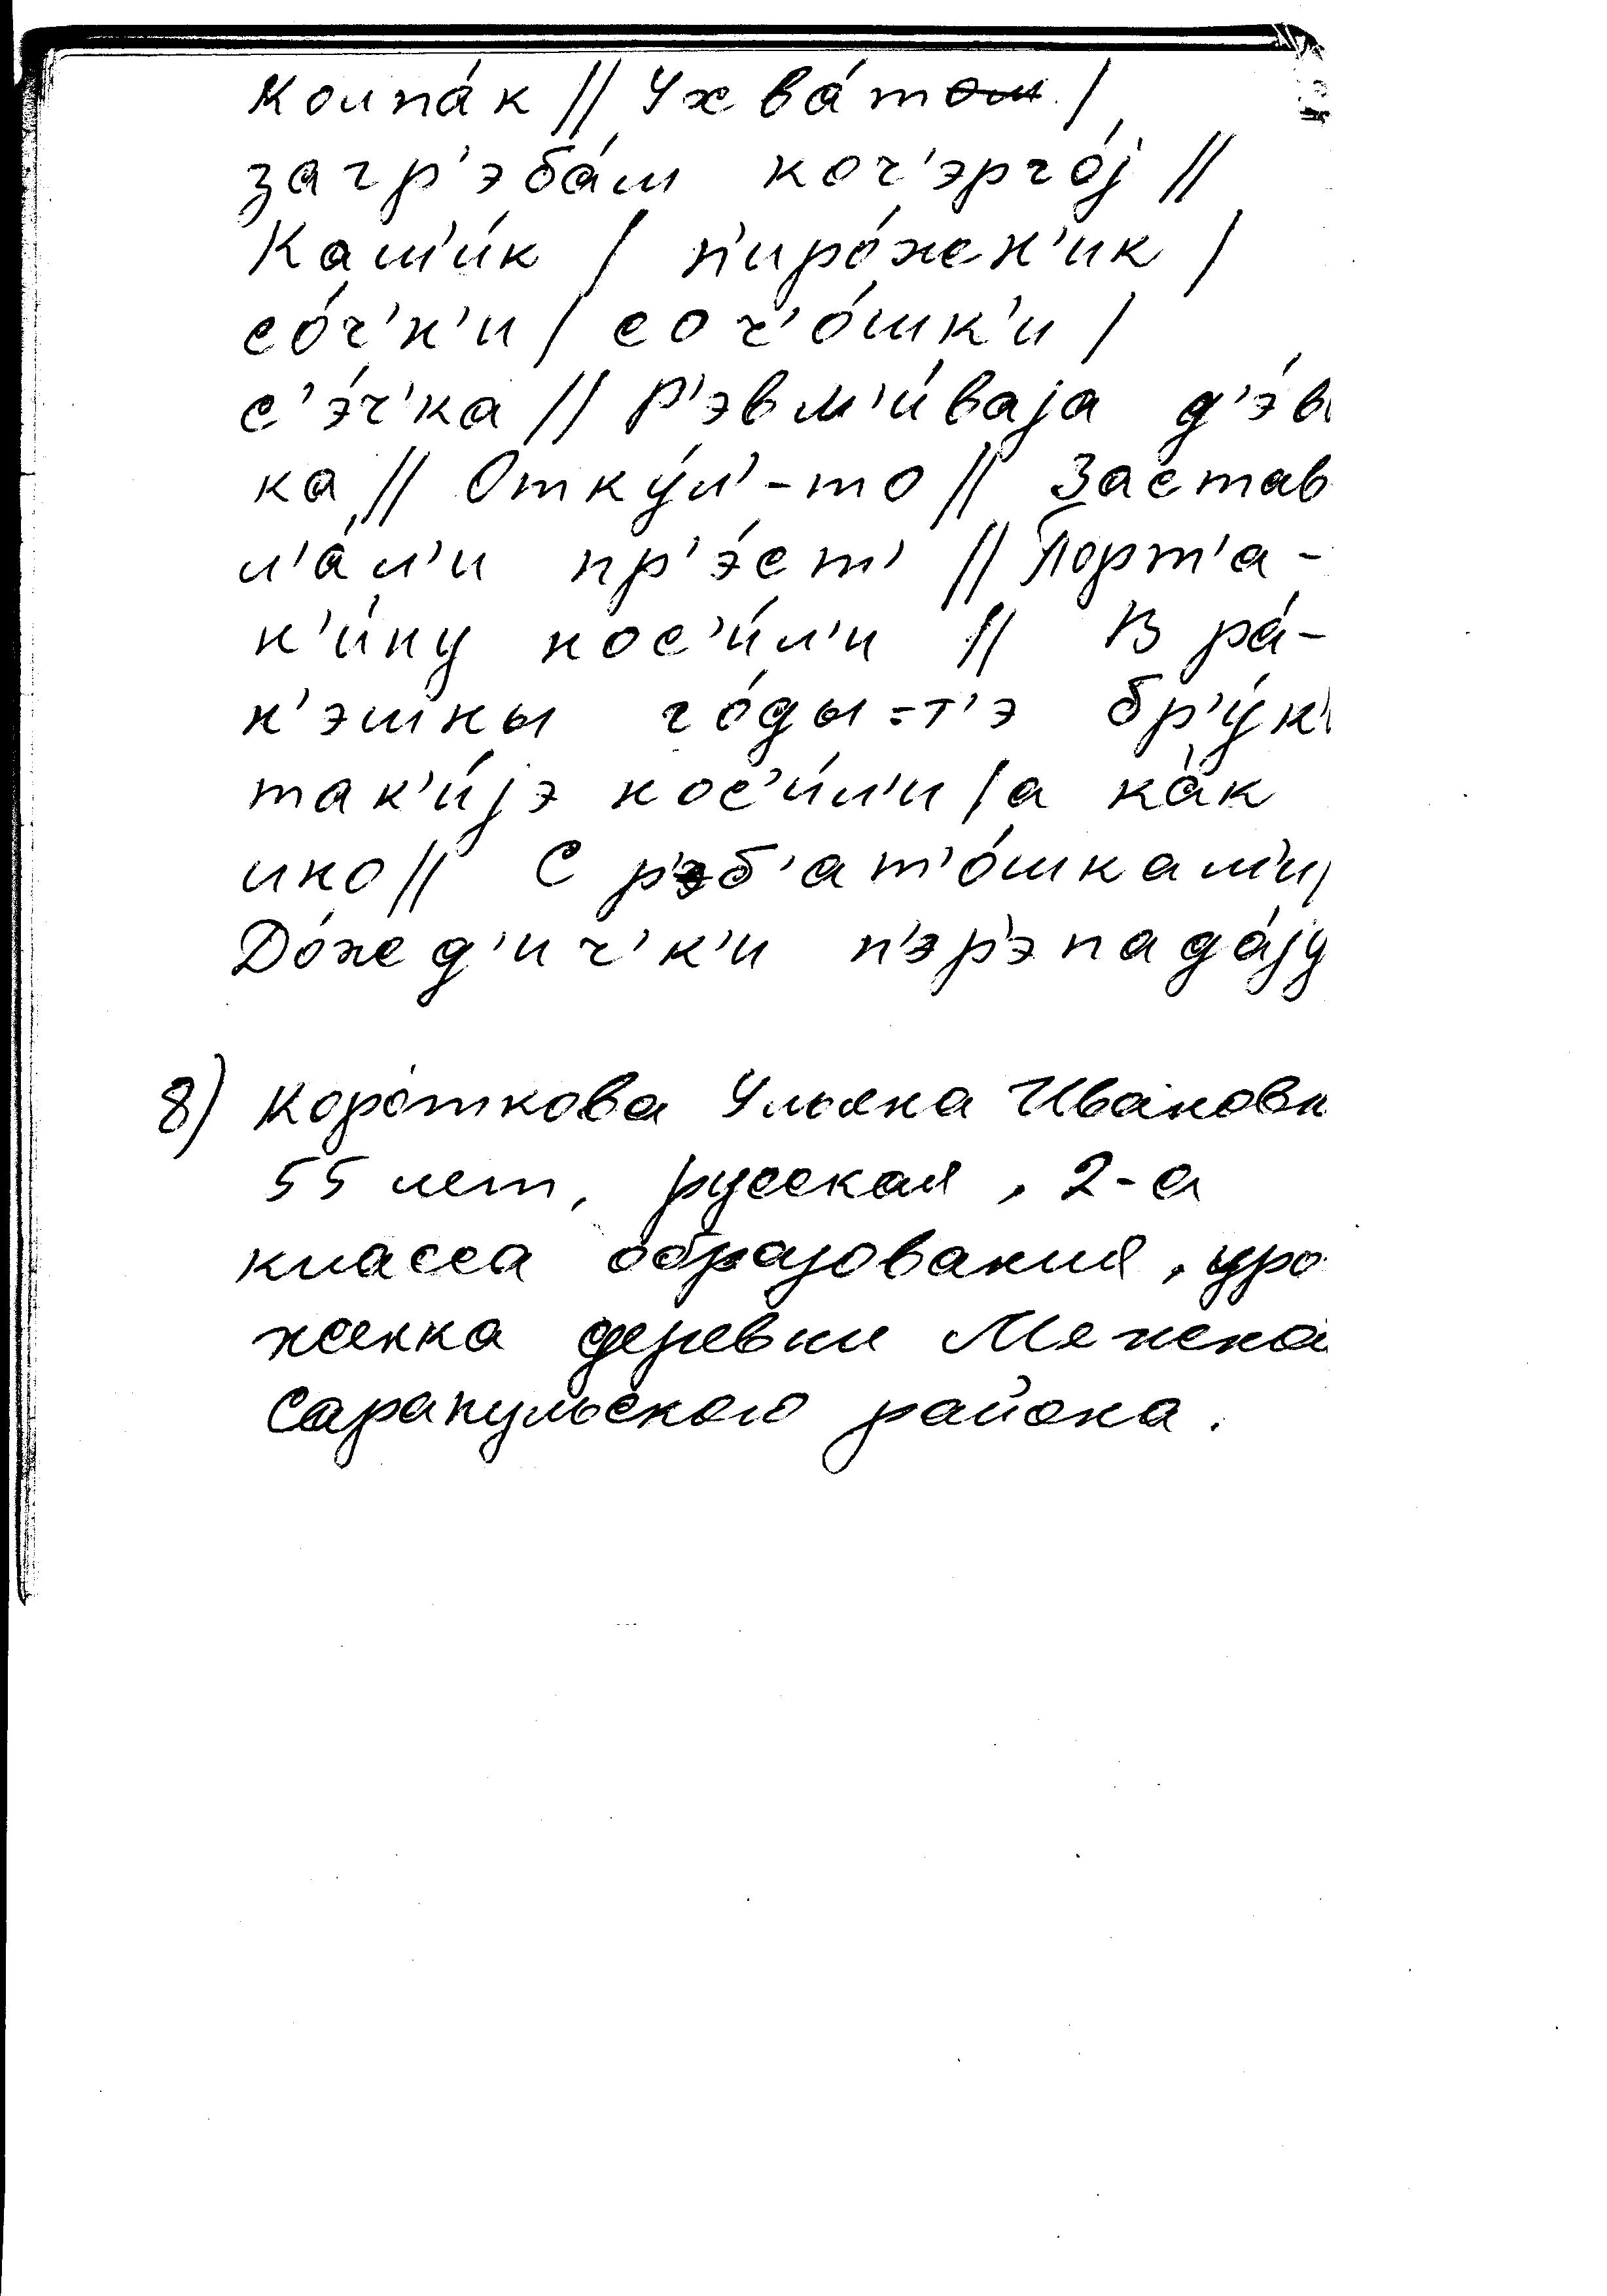 Колпа́к // Ухва́том /
загр'эба́м коч'эрго́j //
Кам'и́к / п'иро́жн'ик /
со́ч'н'и / соч'о́шк'и /
с'э́ч'ка // Р'эвм'и́ваjа д'э́в
ка // Отку́л'-то // Застав
л'а́л'и пр'э́ст' // Порт'а-
н'и́ну нос'и́л'и // В ра́-
н'эшны го́ды=т'э бр'у́к'
так'и́jэ нос'и́л'и / а ка́к
ино // С р'эб'ат'о́шкам'и /
До́жд'ич'к'и п'эр'эпада́jу
8) Короткова Ульяна Ивановн
55 лет, русская, 2-а
класса образования, уро
женка деревни
Сарапульского района.